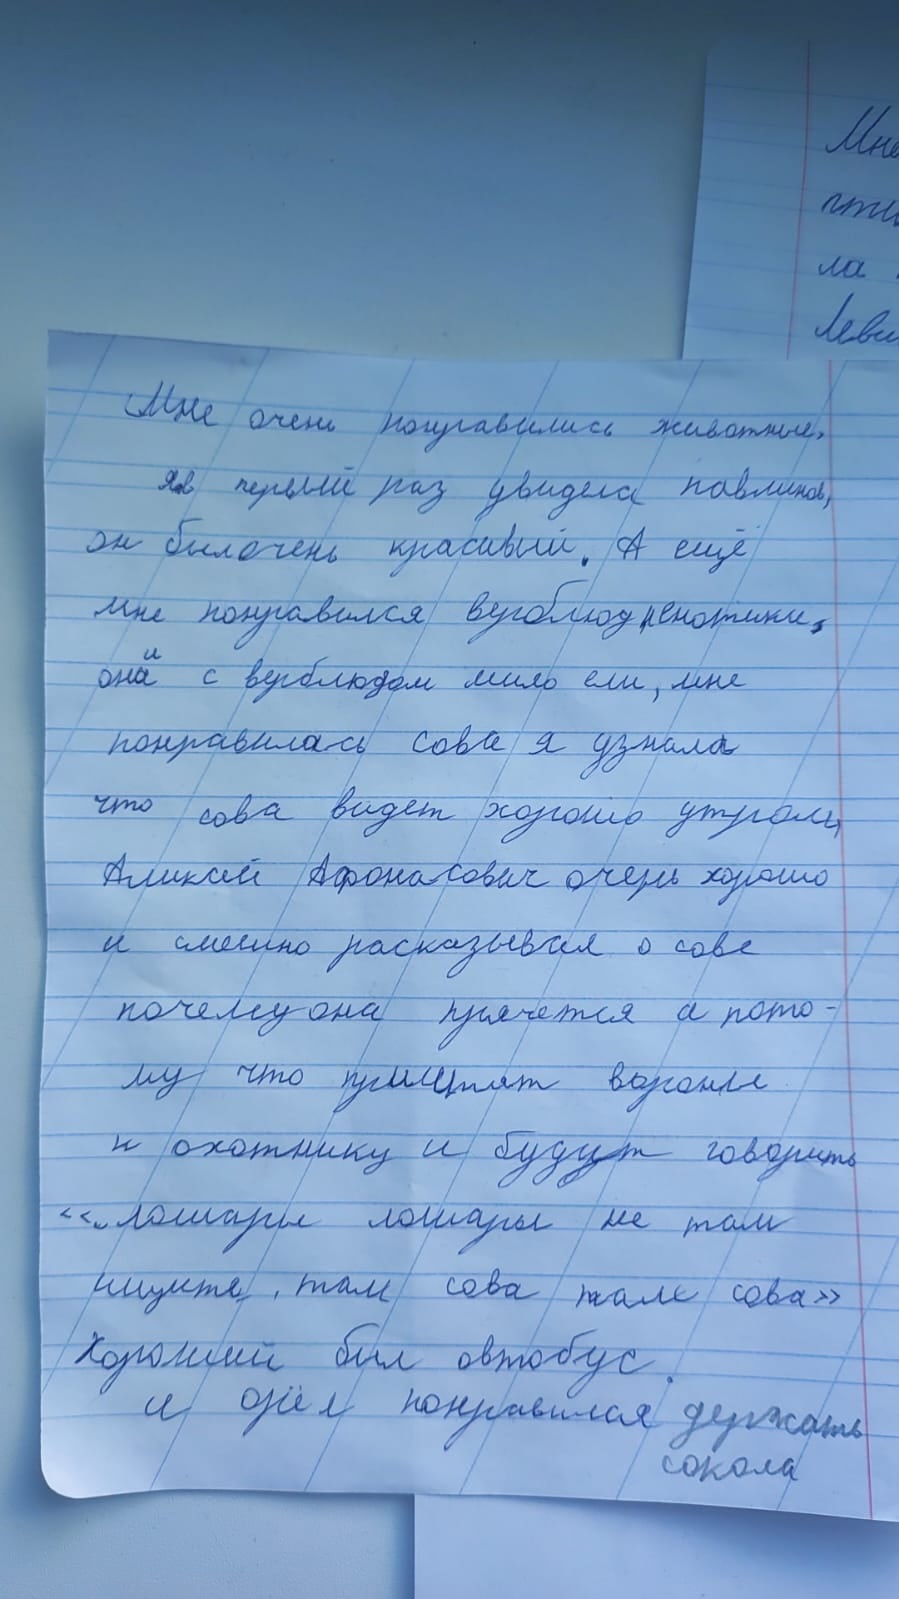 Мне
пти
ла
Леви
Мне очень понравились животные,
Я в первый раз увидела павлинов,
он был очень красивый. А ещё
мне понравился верблюд, енотики,
они с верблюдом мило ели, мне
понравилась сова я узнала
что сова видет хорошо утром,
Аликсей Афонасович очень хорошо
и смешно расказывал о сове
почему она прячется а пото-
му что прилетят вороны
к охотнику и будут говорить
«лошары лошары не там
ищите, там сова там сова»
Хороший был овтобус.
и орёл понравился держать
сокола